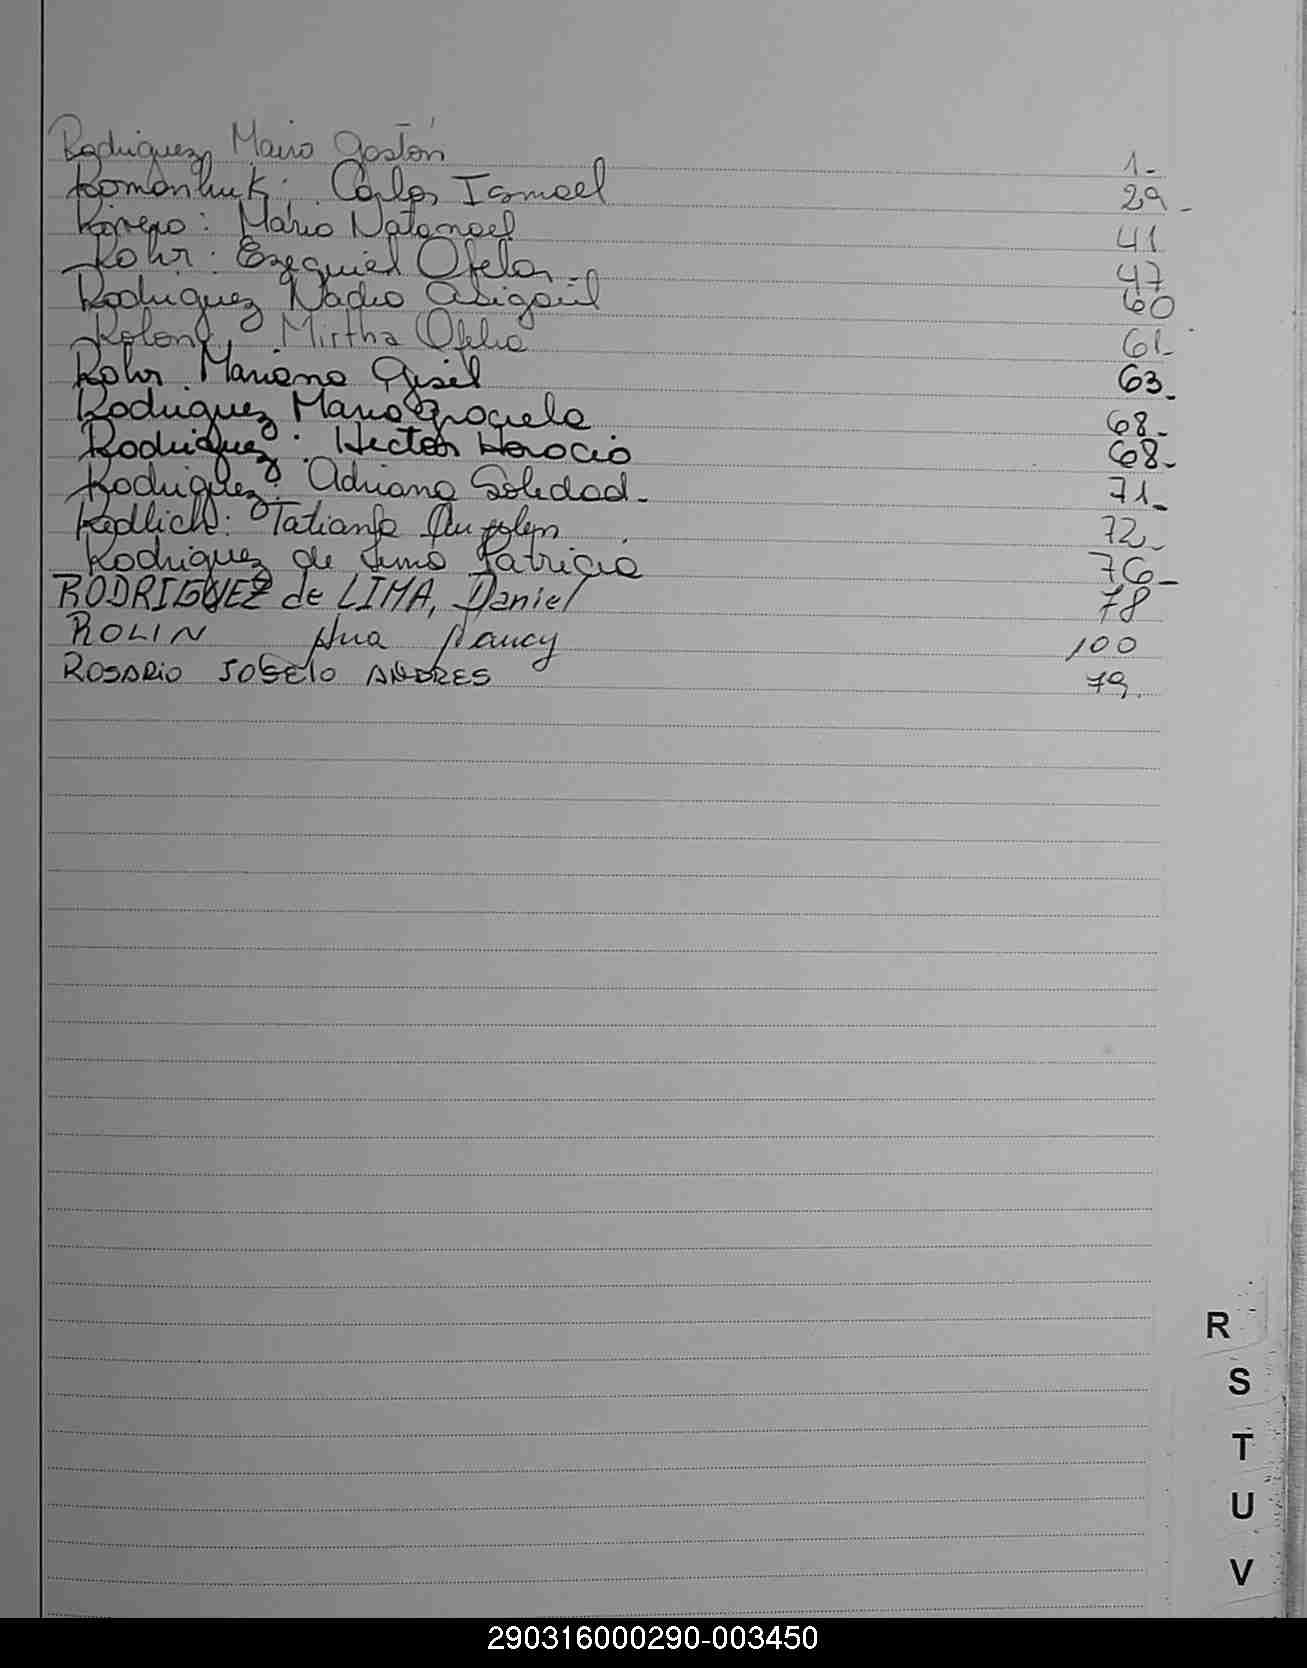 Rodriguez, Mario Gastón 1.-
Romanhuk: Carlos Ismael 29.-
Mario Natanael 41
Rohr: Ezequiel 47
Rodriguez Nadia Abigail 60
Rolon, Mirtha Ofelia 61-
Rohr Mariana Gisel 63.
Rodriguez Maria Graciela 68-
Rodriguez: Hector Horacio 68-
Rodriguez: Adriana Soledad- 71-
Redlich: Tatiana 72-
Rodriguez de Lima Patricia 76-
RODRIGUEZ de LIMA, Daniel 78
ROLIN Ana Nancy 100
ROSARIO ANDRES 79.
R
S
T
U
V
290316000290-003450